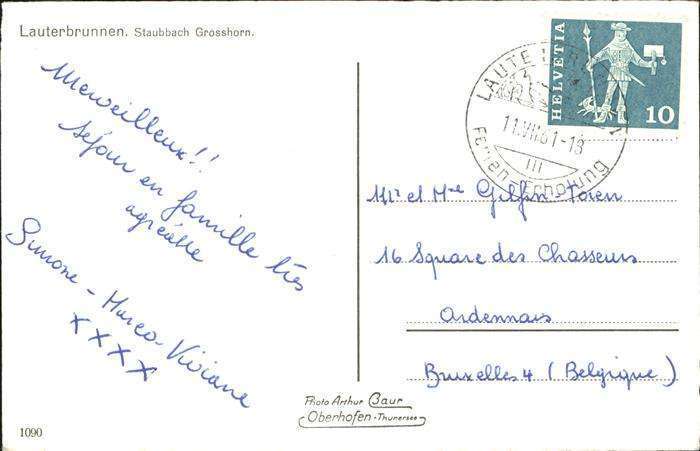 Lauterbrunnen. Staubbach Grosshorn.
Merveilleux!!
séjour en famille très
agréable
Simone - Marco - Viviane
XXXX
HELVETIA
10
LAUTE
11.VII.61-18
Ferien-Erholung
III
Mr et Mme
16 Square des Chasseurs
Ardennais
Bruxelles 4 (Belgique)
Photo Arthur Baur
Oberhofen-Thunersee
1090